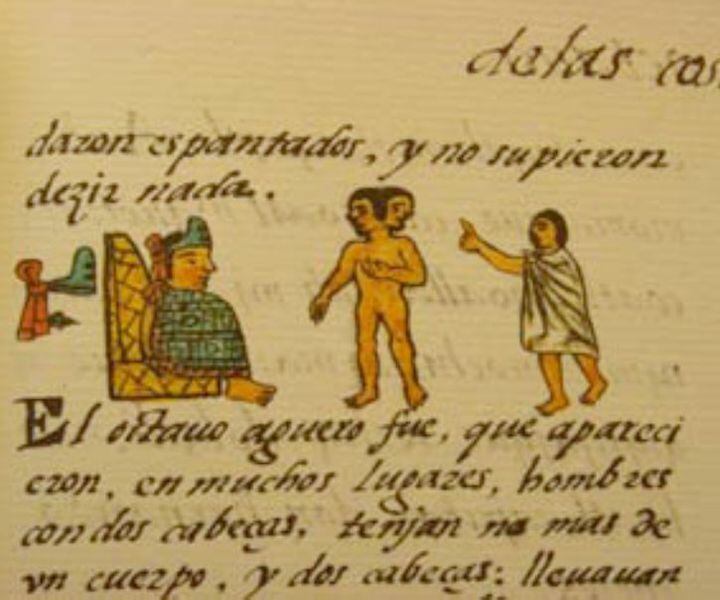 de las cos
daron espantados, y no supieron
dezir nada.
El octauo aguero fue, que apareci
eron, en muchos lugares, hombres
con dos cabeças, tenjan no mas de
vn cuerpo, y dos cabeças: lleuauan